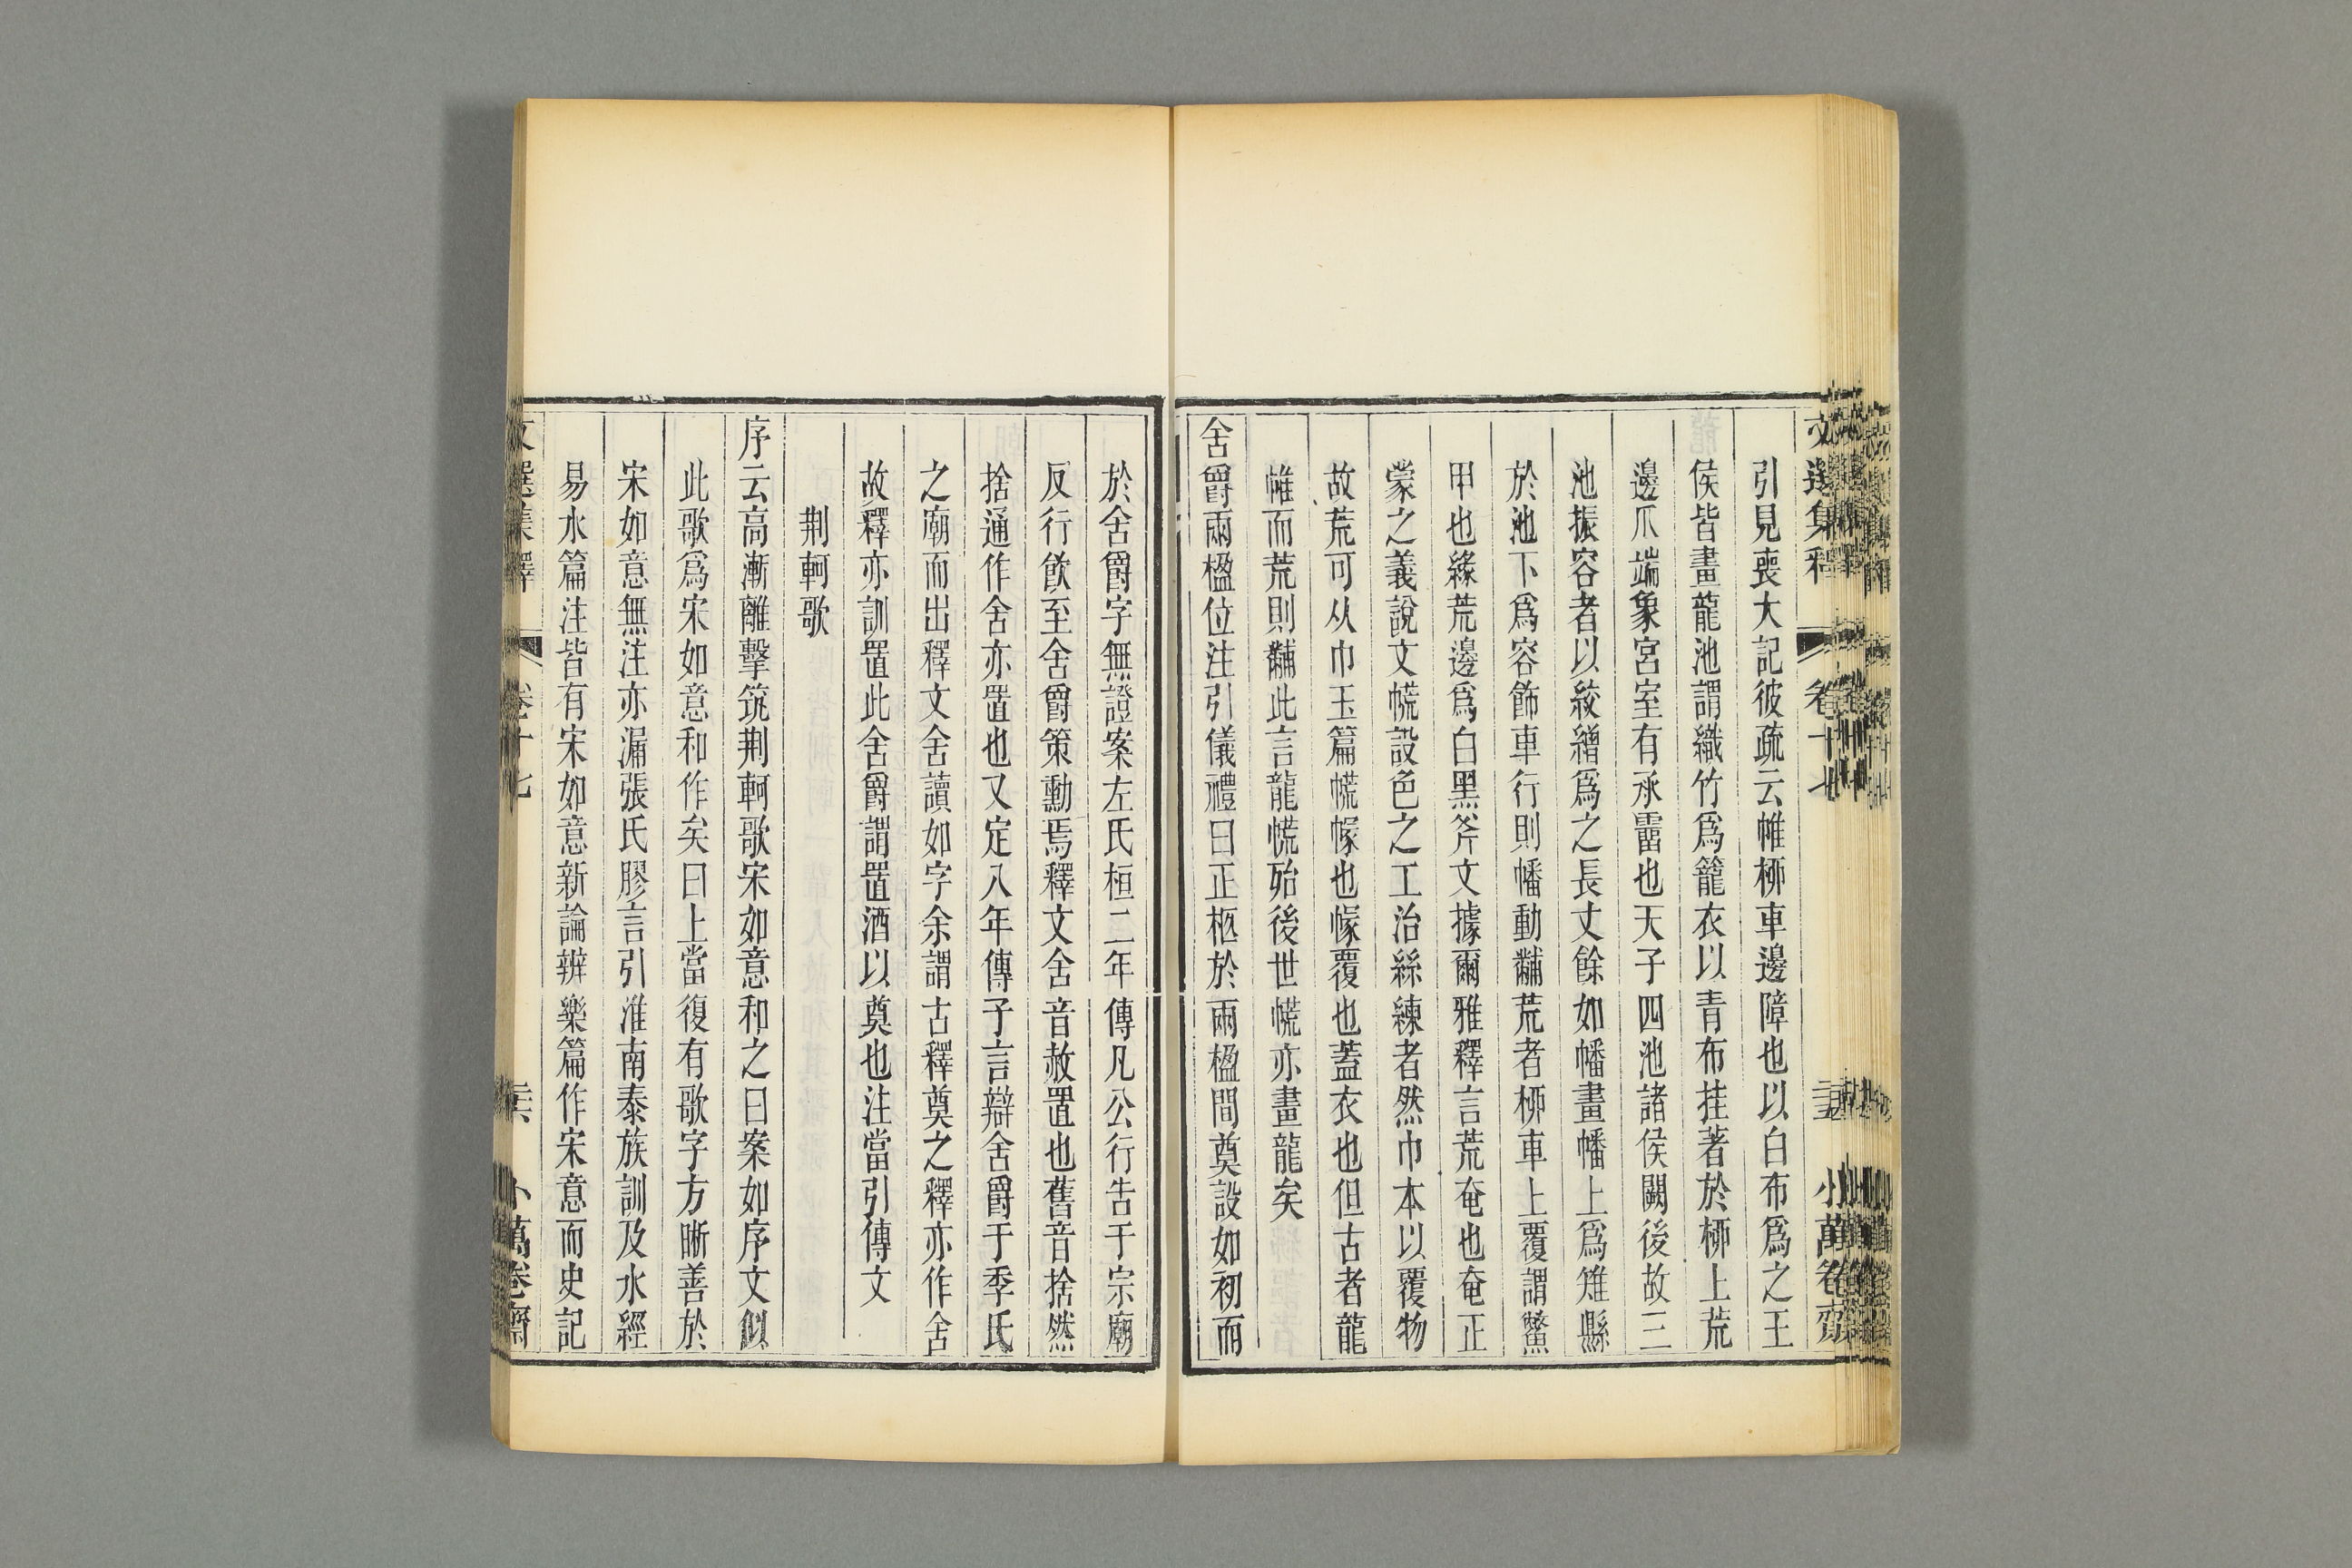 引見喪大記彼疏云帷桺車邊障也以白布爲之王
侯皆畫龍池謂織竹爲籠衣以青布挂著於桺上荒
邊爪端象宮室有承霤也天子四池諸侯闕後故三
池振容者以絞繒爲之長丈餘如幡畫幡上爲雉縣
於池下爲容飾車行則幡動黼荒者桺車上覆謂鱉
甲也緣荒邊爲白黑斧文據爾雅釋言荒奄也奄正
蒙之義說文㡆設色之工治絲練者然巾本以覆物
故荒可从巾玉篇㡆幏也幏覆也蓋衣也但古者龍
帷而荒則黼此言龍㡆殆後世㡆亦畫龍矣
舍爵兩楹位注引儀禮曰正柩於兩楹間奠設如初而
於舍爵字無證案左氏桓二年傳凡公行告于宗廟
反行飲至舍爵策勳焉釋文舍音赦置也舊音捨然
捨通作舍亦置也又定八年傳子言辯舍爵于季氏
之廟而出釋文舍讀如字余謂古釋奠之釋亦作舍
故釋亦訓置此舍爵謂置酒以奠也注當引傳文
荆軻歌
序云高漸離擊筑荆軻歌宋如意和之曰案如序文似
此歌爲宋如意和作矣曰上當復有歌字方晰善於
宋如意無注亦漏張氏膠言引淮南泰族訓及水經
易水篇注皆有宋如意新論辨樂篇作宋意而史記
文選集釋 卷十七 小萬卷齋